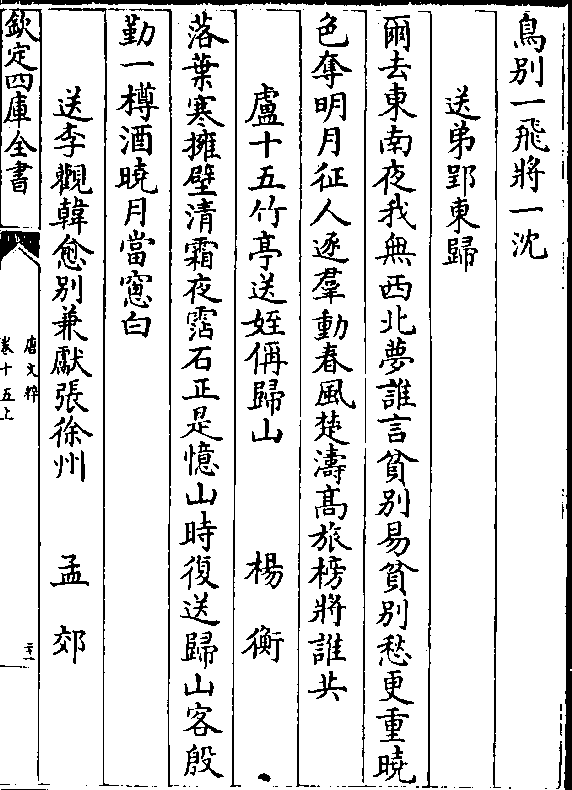 鳥別一飛將一沈
送弟郢東歸
爾去東南夜我無西北夢誰言貧別易貧別愁更重曉
色奪明月征人逐羣動春風楚濤髙旅榜將誰共
盧十五竹亭送姪偁歸山　楊衡
落葉寒擁壁清霜夜霑石正是憶山時復送歸山客殷
勤一樽酒曉月當窻白
送李觀韓愈別兼獻張徐州　孟郊
欽定四庫全書
唐文粹
卷十五上